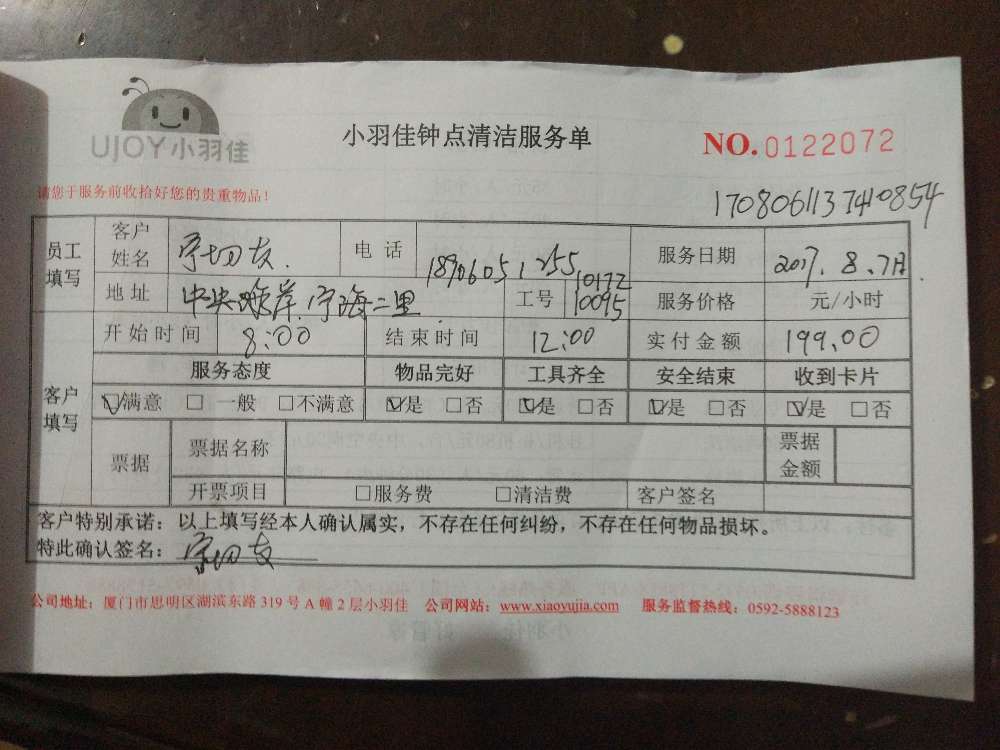 UJOY小羽佳
小羽佳钟点清洁服务单
NO.0122072
请您于服务前收拾好您的贵重物品！
1708061137410854
员工填写 客户姓名 电话 18906051255 服务日期 2017.8.7日
地址 中央海岸宁海二里 工号 10172 10095 服务价格 元/小时
开始时间 8:00 结束时间 12:00 实付金额 199.00
客户填写 服务态度 物品完好 工具齐全 安全结束 收到卡片
☑满意 □一般 □不满意 ☑是 □否 ☑是 □否 ☑是 □否 ☑是 □否
票据 票据名称 票据金额
开票项目 □服务费 □清洁费 客户签名
客户特别承诺：以上填写经本人确认属实，不存在任何纠纷，不存在任何物品损坏。
特此确认签名：
公司地址：厦门市思明区湖滨东路319号A幢2层小羽佳 公司网站：www.xiaoyujia.com 服务监督热线：0592-5888123